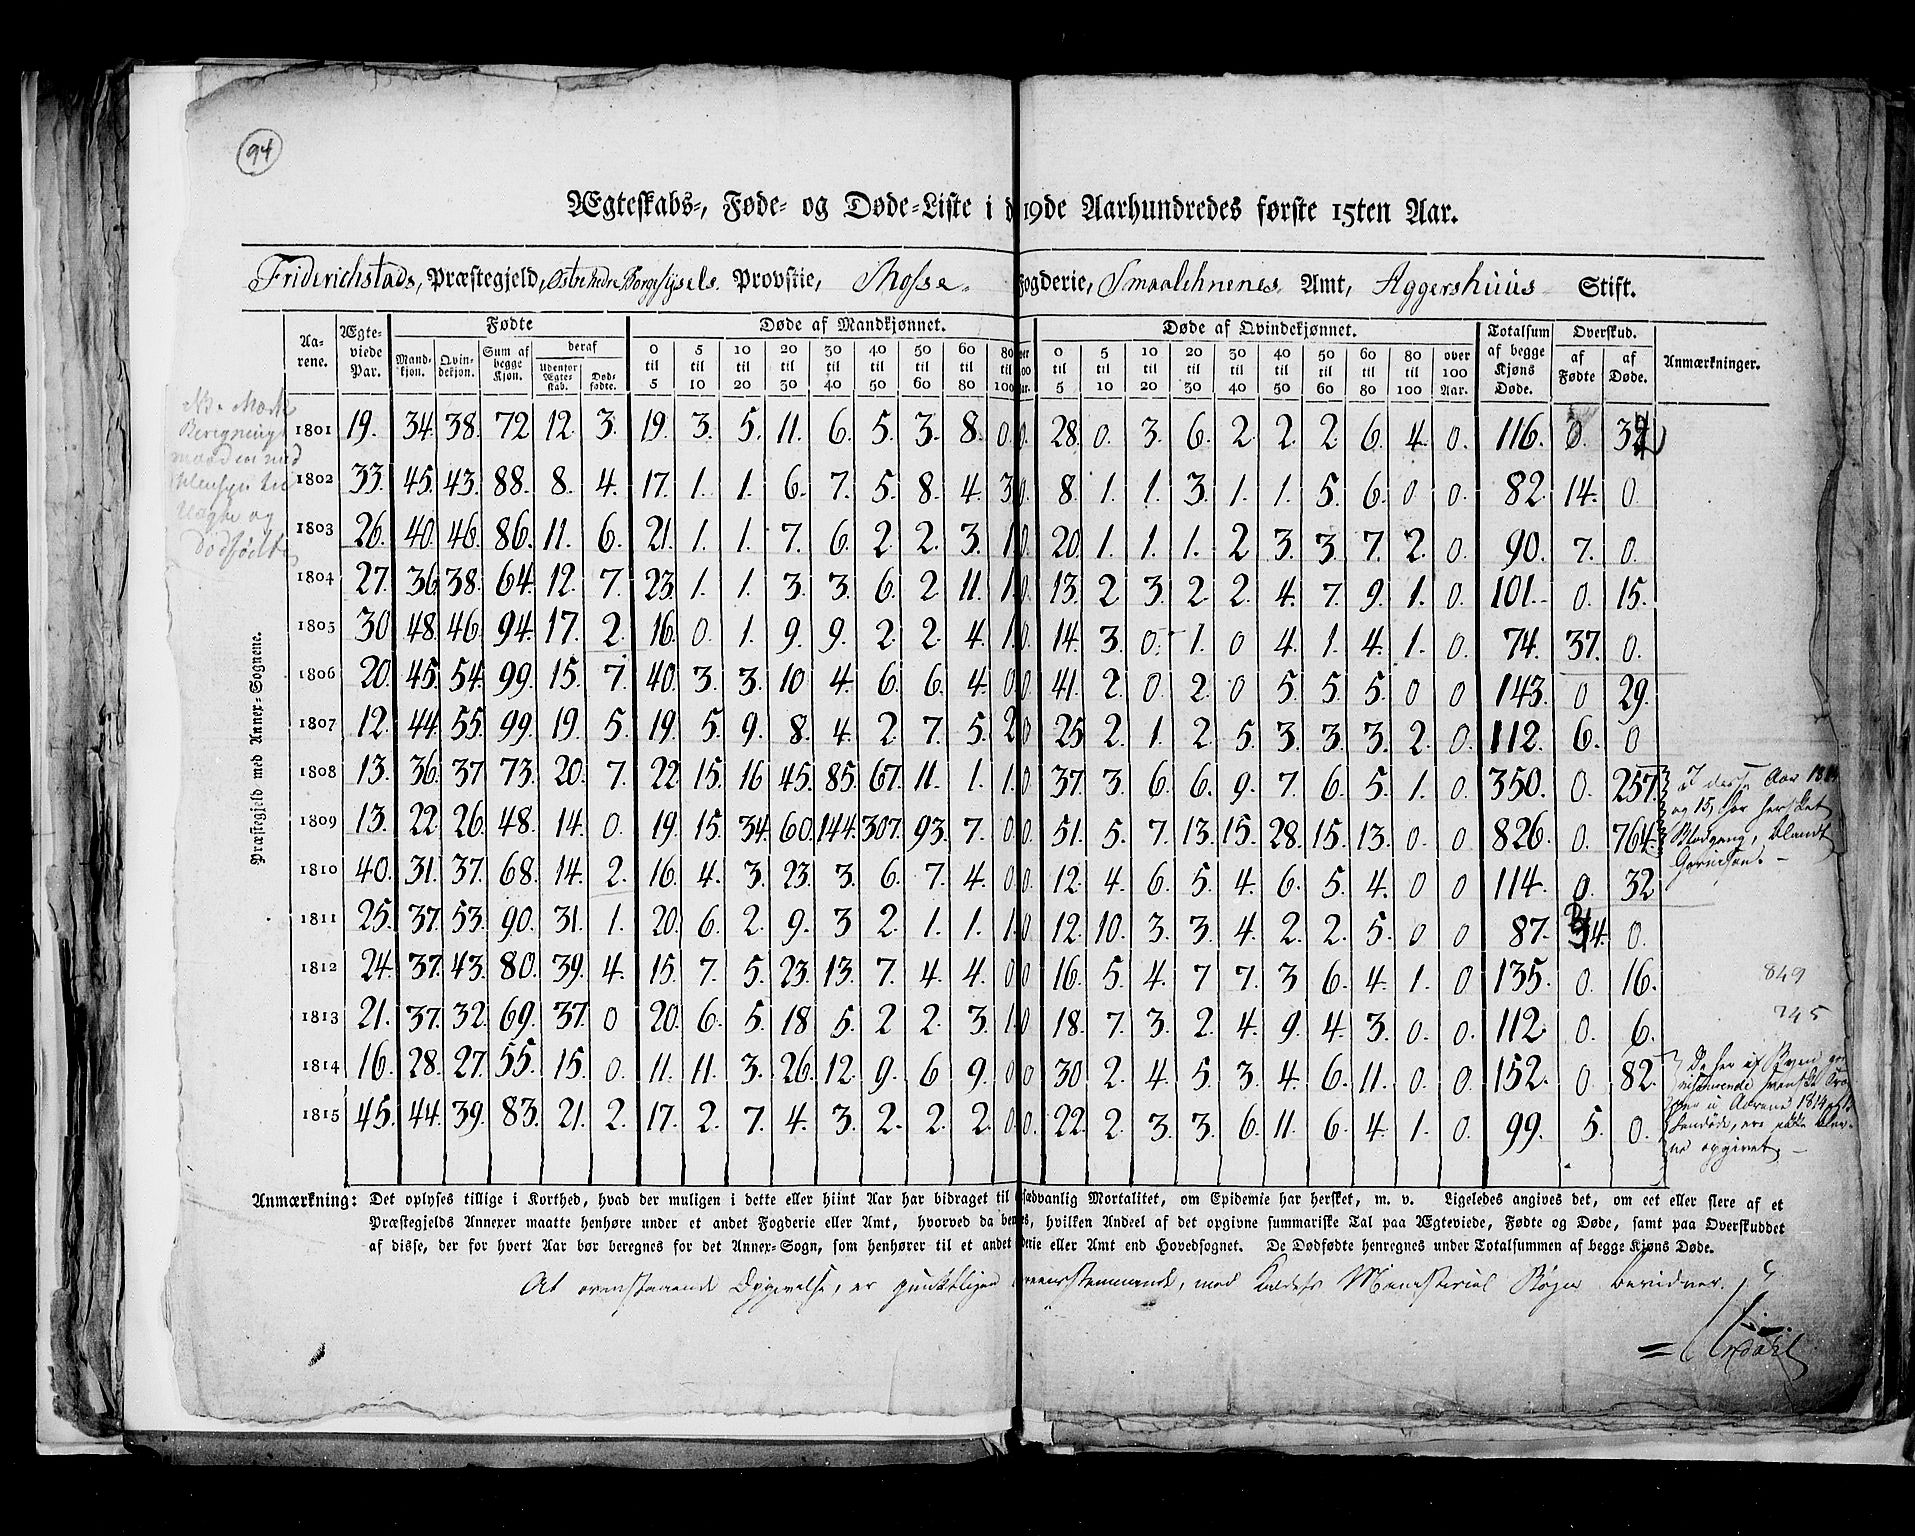 94
Ægteskabs-, Føde- og Døde-Liste i d 19de Aarhundredes første 15ten Aar.
Friderichstads, Præstegjeld, Provstie, Mosse Fogderie, Smaalehnenes Amt, Aggershuus Stift.
Aa-rene. Ægte-viede Par. Fødte Døde af Mandkjønnet. Døde af Qvindekjønnet. Totalsum af begge Kjøns Døde. Overskud. Anmærkninger.
Mand-kjøn. Qvin-dekjøn. Sum af begge Kjøn. deraf Udenfor Ægte-skab. Død-fødte. 0 til 5 5 til 10 10 til 20 20 til 30 30 til 40 40 til 50 50 til 60 60 til 80 80 til 100 0 til 5 5 til 10 10 til 20 20 til 30 30 til 40 40 til 50 50 til 60 60 til 80 80 til 100 over 100 Aar. af Fødte af Døde.
Præstegjeld med Annex-Sognene.
1801 19. 34. 38. 72 12. 3. 19. 3. 5. 11. 6. 5. 3. 8. 0. 0. 28. 0. 3. 6. 2 2. 2 6. 4. 0. 116. 0.
1802 33. 45. 43. 88. 8. 4. 17. 1. 1. 6. 7. 5. 8. 4. 3 0. 8. 1. 1. 3. 1. 1. 5. 6. 0 0. 82 14. 0.
1803 26. 40. 46. 86. 11. 6. 21. 1. 1. 7. 6. 2 2. 3. 1. 0. 20. 1. 1. 1. 2 3. 3. 7. 2. 0. 90. 7. 0.
1804 27. 36. 38. 64. 12. 7. 23. 1. 1. 3. 3. 6. 2 11. 1. 0. 13. 2 3. 2 2. 4. 7. 9. 1. 0. 101. 0. 15.
1805 30 48. 46. 94. 17. 2. 16. 0. 1. 9. 9. 2 2. 4. 1. 0. 14. 3. 0. 1. 0 4. 1. 4. 1. 0. 74. 37. 0.
1806 20. 45. 54. 99. 15. 7. 40. 3. 3. 10 4. 6. 6. 4. 0 0 41. 2 0 2 0 5. 5. 5. 0 0 143. 0 29.
1807 12. 44. 55. 99. 19. 5. 19. 5. 9. 8. 4. 2 7. 5. 2 0 25 2. 1. 2 5. 3. 3. 3. 2 0. 112. 6. 0
1808 13. 36. 37 73. 20. 7. 22. 15. 16 45. 85. 67. 11. 1. 1. 0 37. 3. 6 6. 9. 7. 6. 5. 1. 0 350. 0. 257.
1809 13. 22 26. 48. 14. 0. 19. 15. 34. 60. 144. 307. 93. 7. 0. 0. 51. 5. 7. 13. 15. 28. 15. 13. 0. 0. 826. 0. 764.
1810 40. 31. 37. 68. 14. 2. 16. 4. 3. 23. 3. 6. 7. 4. 0 0. 12. 4. 6. 5. 4. 6. 5. 4. 0 0 114. 0. 32
1811 25. 37. 53. 90. 31. 1. 20. 6. 2 9. 3 2. 1. 1. 1. 0 12. 10. 3. 3. 4. 2. 2. 5. 0 0 87. 0.
1812 24. 37. 43. 80. 39. 4. 15. 7. 5. 23. 13. 7. 4 4. 0 0 16. 5. 4. 7 7. 3 6. 4. 1. 0 135. 0. 16.
1813 21. 37. 32. 69. 37. 0 20. 6. 5. 18 5. 2 2. 3. 1. 0 18. 7. 3. 2 4. 9. 4. 3. 0. 0. 112. 0. 6.
1814 16. 28. 27. 55. 15. 0. 11. 11. 3. 26. 12. 9. 6 9. 0 0 30 2. 4. 5. 3. 4. 6. 11. 0 0. 152. 0 82.
1815 45. 44. 39. 83. 21. 2. 17. 2. 7. 4. 3. 2. 2. 2. 0 0. 22. 2. 3. 3. 6. 11. 6. 4. 1. 0. 99. 5. 0.
og 15, har hersket
Blodgang, blandt
849
745
Anmærkning: Det oplyses tillige i Korthed, hvad der muligen i dette eller hiint Aar har bidraget til sædvanlig Mortalitet, om Epidemie har hersket, m. v. Ligeledes angives det, om eet eller flere af et
Præstegjelds Annexer maatte henhøre under et andet Fogderie eller Amt, hvorved da be es, hvilken Andeel af det opgivne summariske Tal paa Ægteviede, Fødte og Døde, samt paa Overskuddet
af disse, der for hvert Aar bør beregnes for det Annex-Sogn, som henhører til et andet derie eller Amt end Hovedsognet. De Dødfødte henregnes under Totalsummen af begge Kjøns Døde.
At ovenstaaende Opgivelse, er Ministerial Bøger bevidner.